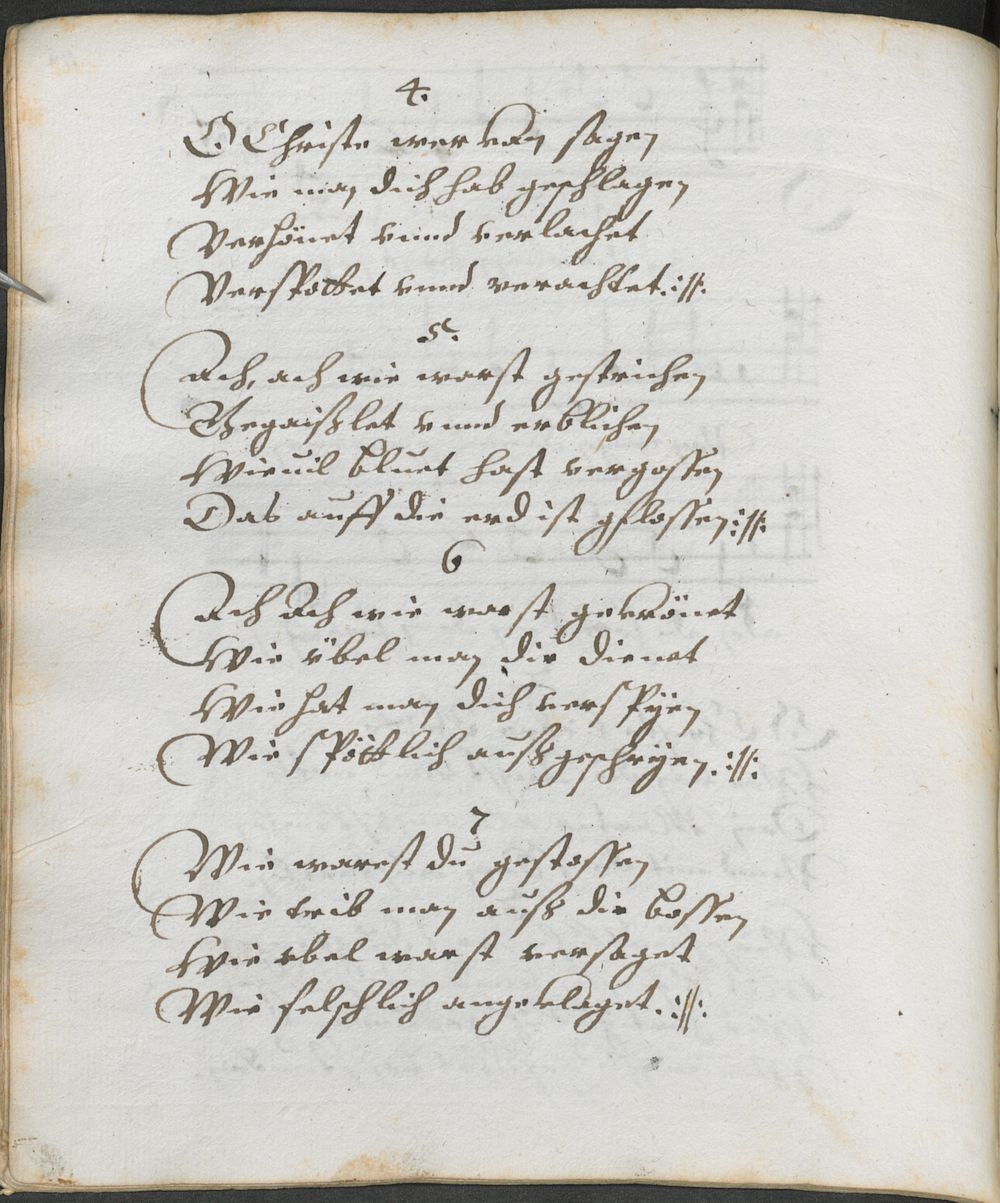 4.
O Christe wer kan sagen
Wie man dich hab geschlagen
Verhönet vnnd verlachet
Verspottet vnnd verachtet :||:
5.
Ach, ach wie warst gestrichen
Gegaißlet vnnd erblichen
Wieuil bluet hast vergossen
Das auff die erd ist gflossen :||:
6
Ach Ach wie warst gekrönet
Wie übel man dir dienet
Wie hat man dich verspÿen
Wie spöttlich außgeschrÿen. :||:
7
Wie warest du gestossen
Wie trib man auß dir bossen
Wie vbel warst versaget
Wie felschlich angeklaget. :||: